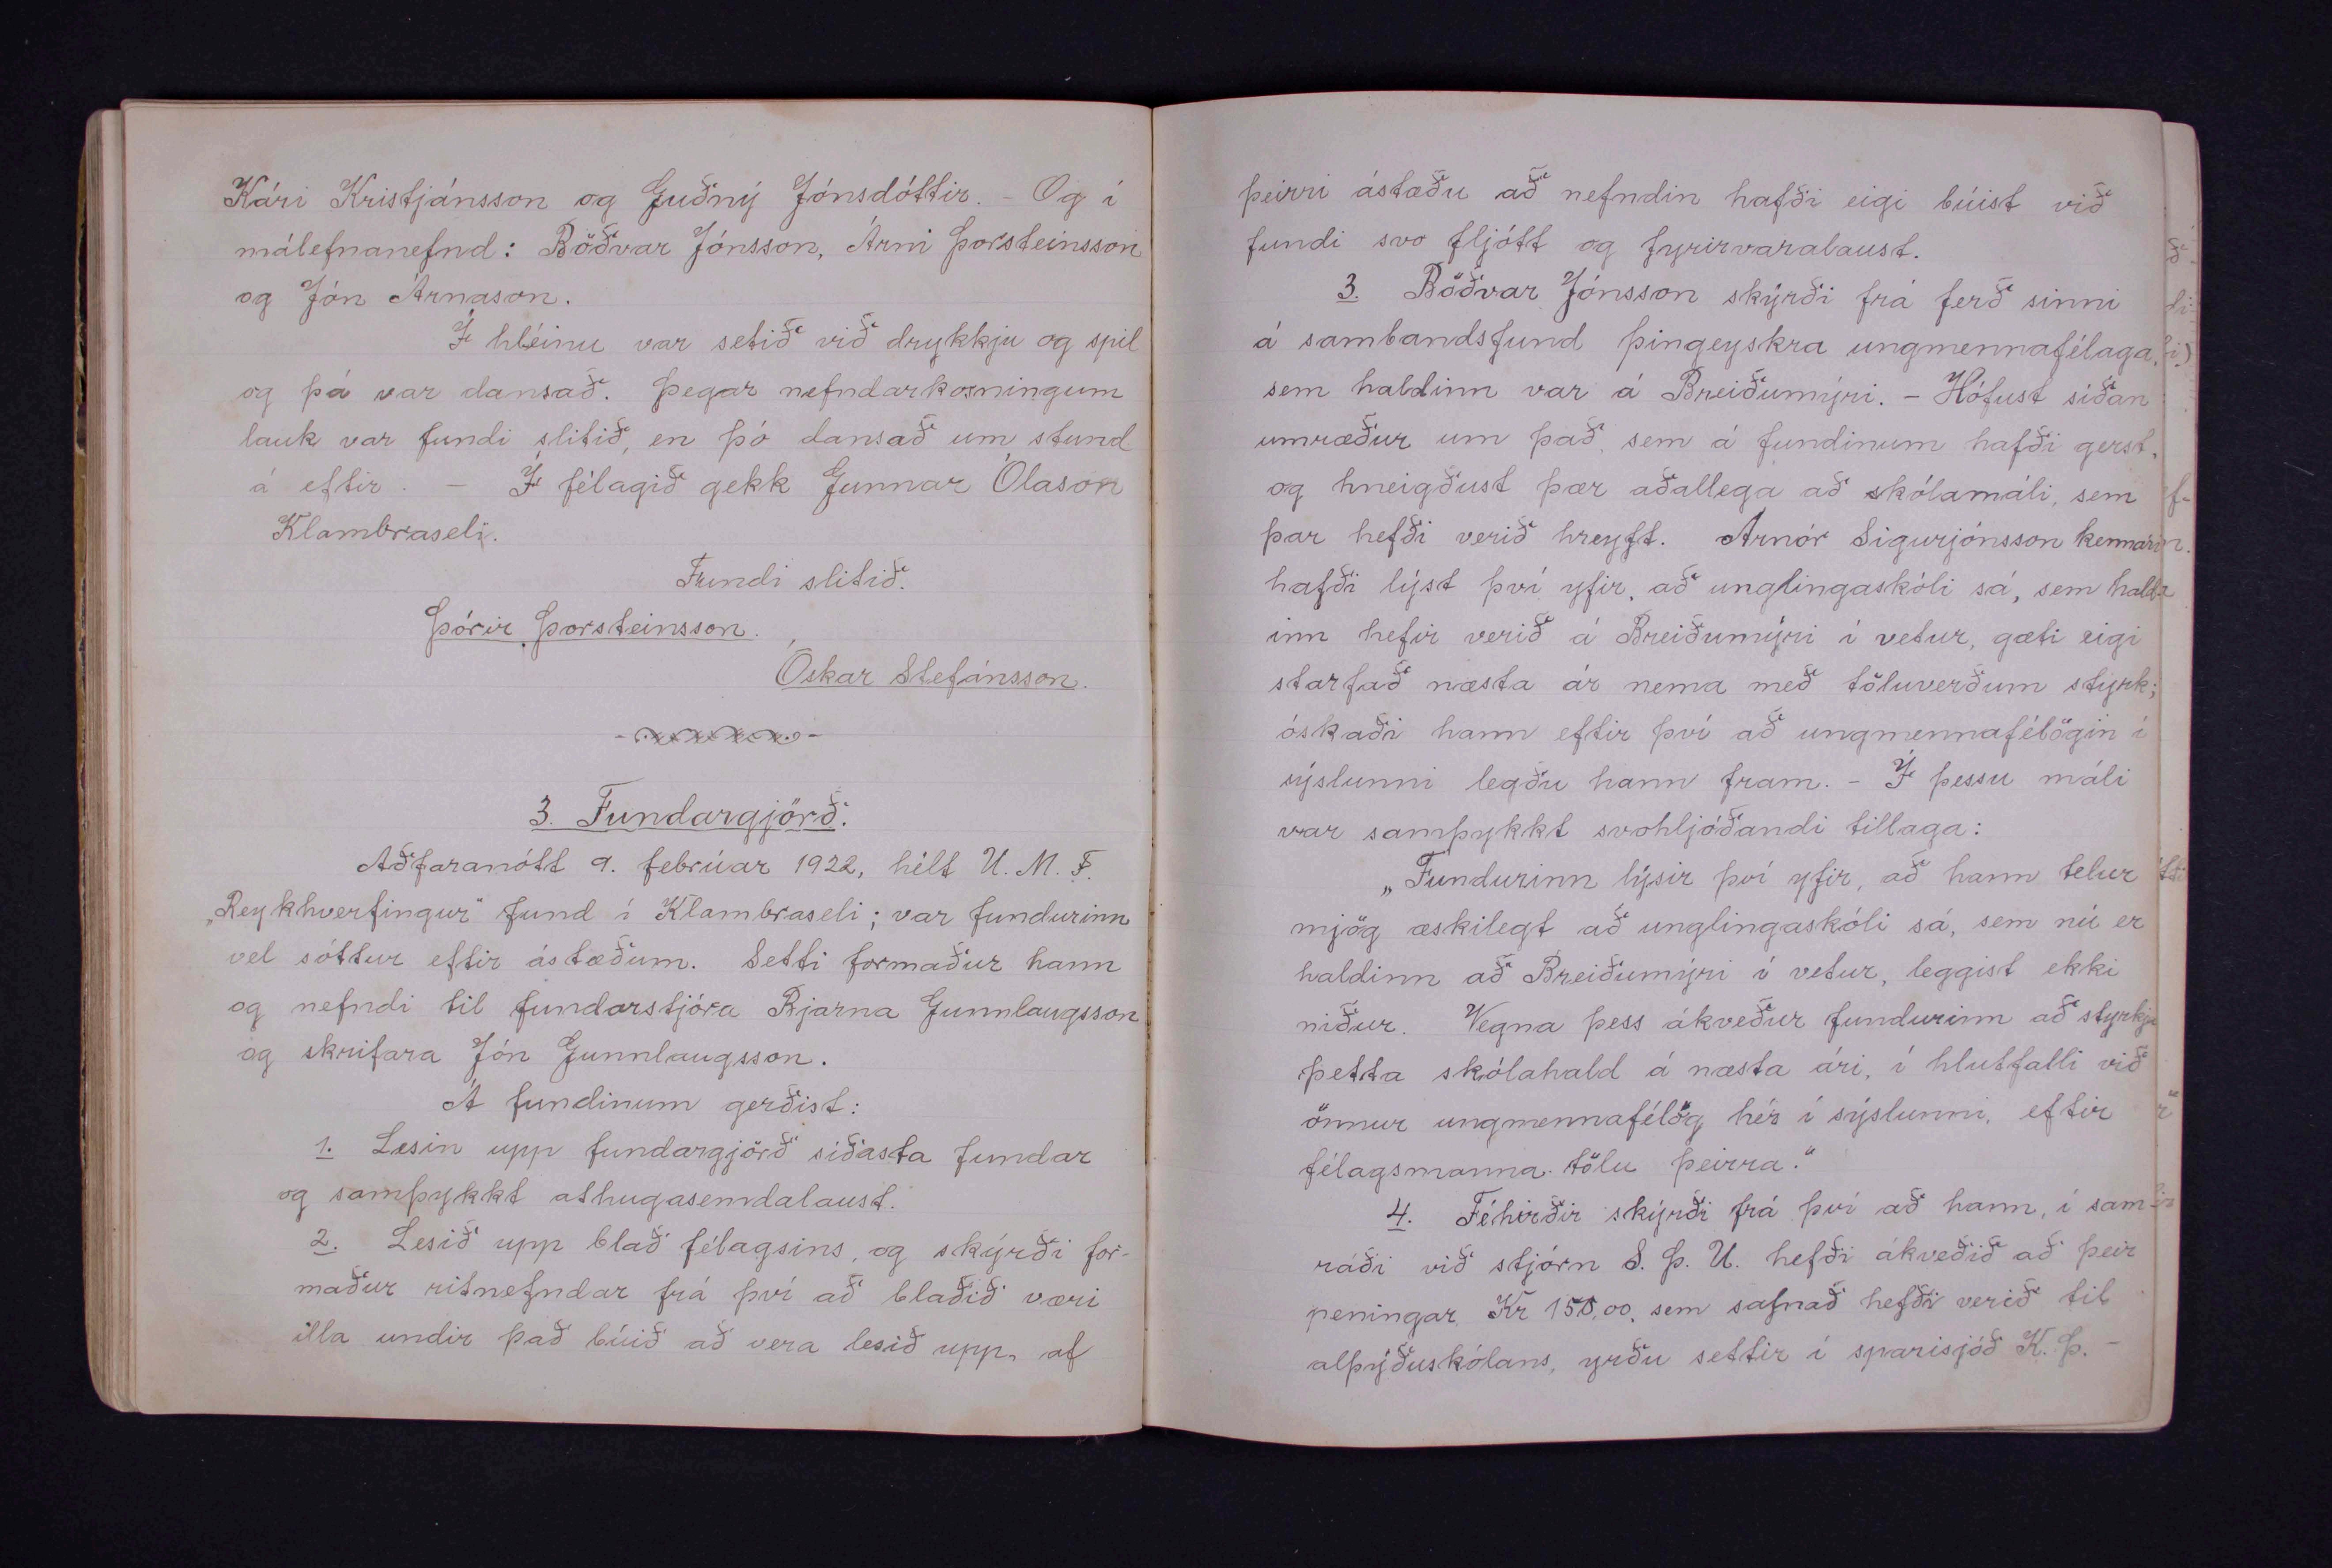 Kári Kristjánsson og Guðný Jónsdóttir. - Og í
málefnanefnd: Böðvar Jónsson, Árni Þorsteinsson
og Jón Árnason.
Í hléinu var setið við drykkju og spil
og þá var dansað. Þegar nefndarkosningum
lauk var fundi slitið, en þó dansað um stund
á eftir. - Í félagið gekk Gunnar Ólason
Klambraseli.
Fundi slitið.
Þórir Þorsteinsson.
Óskar Stefánsson.
3. Fundargjörð.
Aðfaranótt 9. febrúar 1922, hélt U. M. F.
„Reykhverfingur" fund í Klambraseli; var fundurinn
vel sóttur eftir ástæðum. Setti formaður hann
og nefndi til fundarstjóra Bjarna Gunnlaugsson
og skrifara Jón Gunnlaugsson.
Á fundinum gerðist:
1. Lesin upp fundargjörð síðasta fundar
og samþykkt athugasemdalaust.
2. Lesið upp blað félagsins, og skýrði for-
maður ritnefndar frá því að blaðið væri
illa undir það búið að vera lesið upp, af
þeirri ástæðu að nefndin hafði eigi búist við
fundi svo fljótt og fyrirvaralaust.
3. Böðvar Jónsson skýrði frá ferð sinni
á sambandsfund þingeyskra ungmennafélaga,
sem haldinn var á Breiðumýri. - Hófust síðan
umræður um það, sem á fundinum hafði gerst,
og hneigðust þær aðallega að skólamáli, sem
þar hefði verið hreyft. Arnór Sigurjónsson kennari
hafði lýst því yfir, að unglingaskóli sá, sem hald-
inn hefir verið á Breiðumýri í vetur, gæti eigi
starfað næsta ár nema með töluverðum styrk;
óskaði hann eftir því að ungmennafélögin í
sýslunni legðu hann fram. - Í þessu máli
var samþykkt svohljóðandi tillaga:
„Fundurinn lýsir því yfir, að hann telur
mjög æskilegt að unglingaskóli sá, sem nú er
haldinn að Breiðumýri í vetur, leggist ekki
niður. Vegna þess ákveður fundurinn að styrkja
þetta skólahald á næsta ári, í hlutfalli við
önnur ungmennafélög hér í sýslunni, eftir
félagsmanna tölu þeirra."
4. Féhirðir skýrði frá því að hann, í sam-
ráði við stjórn S. Þ. U. hefði ákveðið að þeir
peningar, Kr 150,00, sem safnað hefði verið til
alþýðuskólans, yrðu settir í sparisjóð K. Þ. -